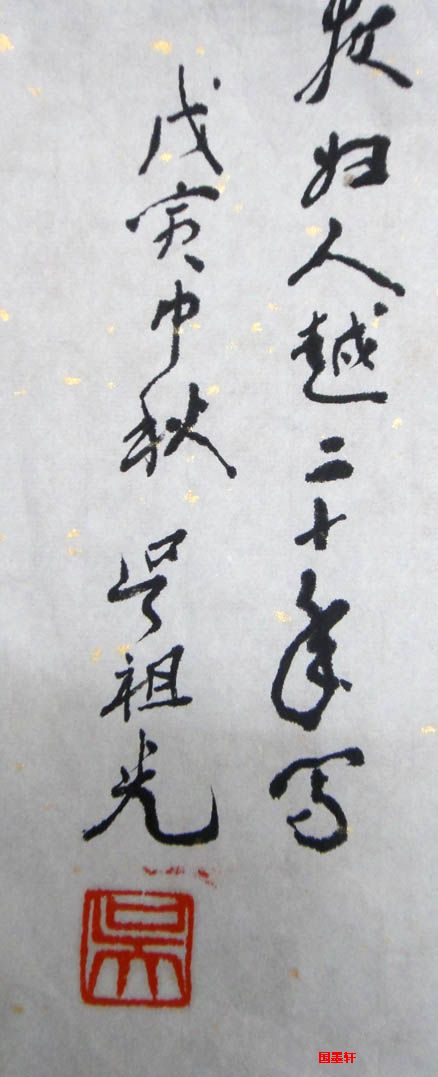 妇人越二十年写
戊寅中秋 吴祖光
吴
国墨轩